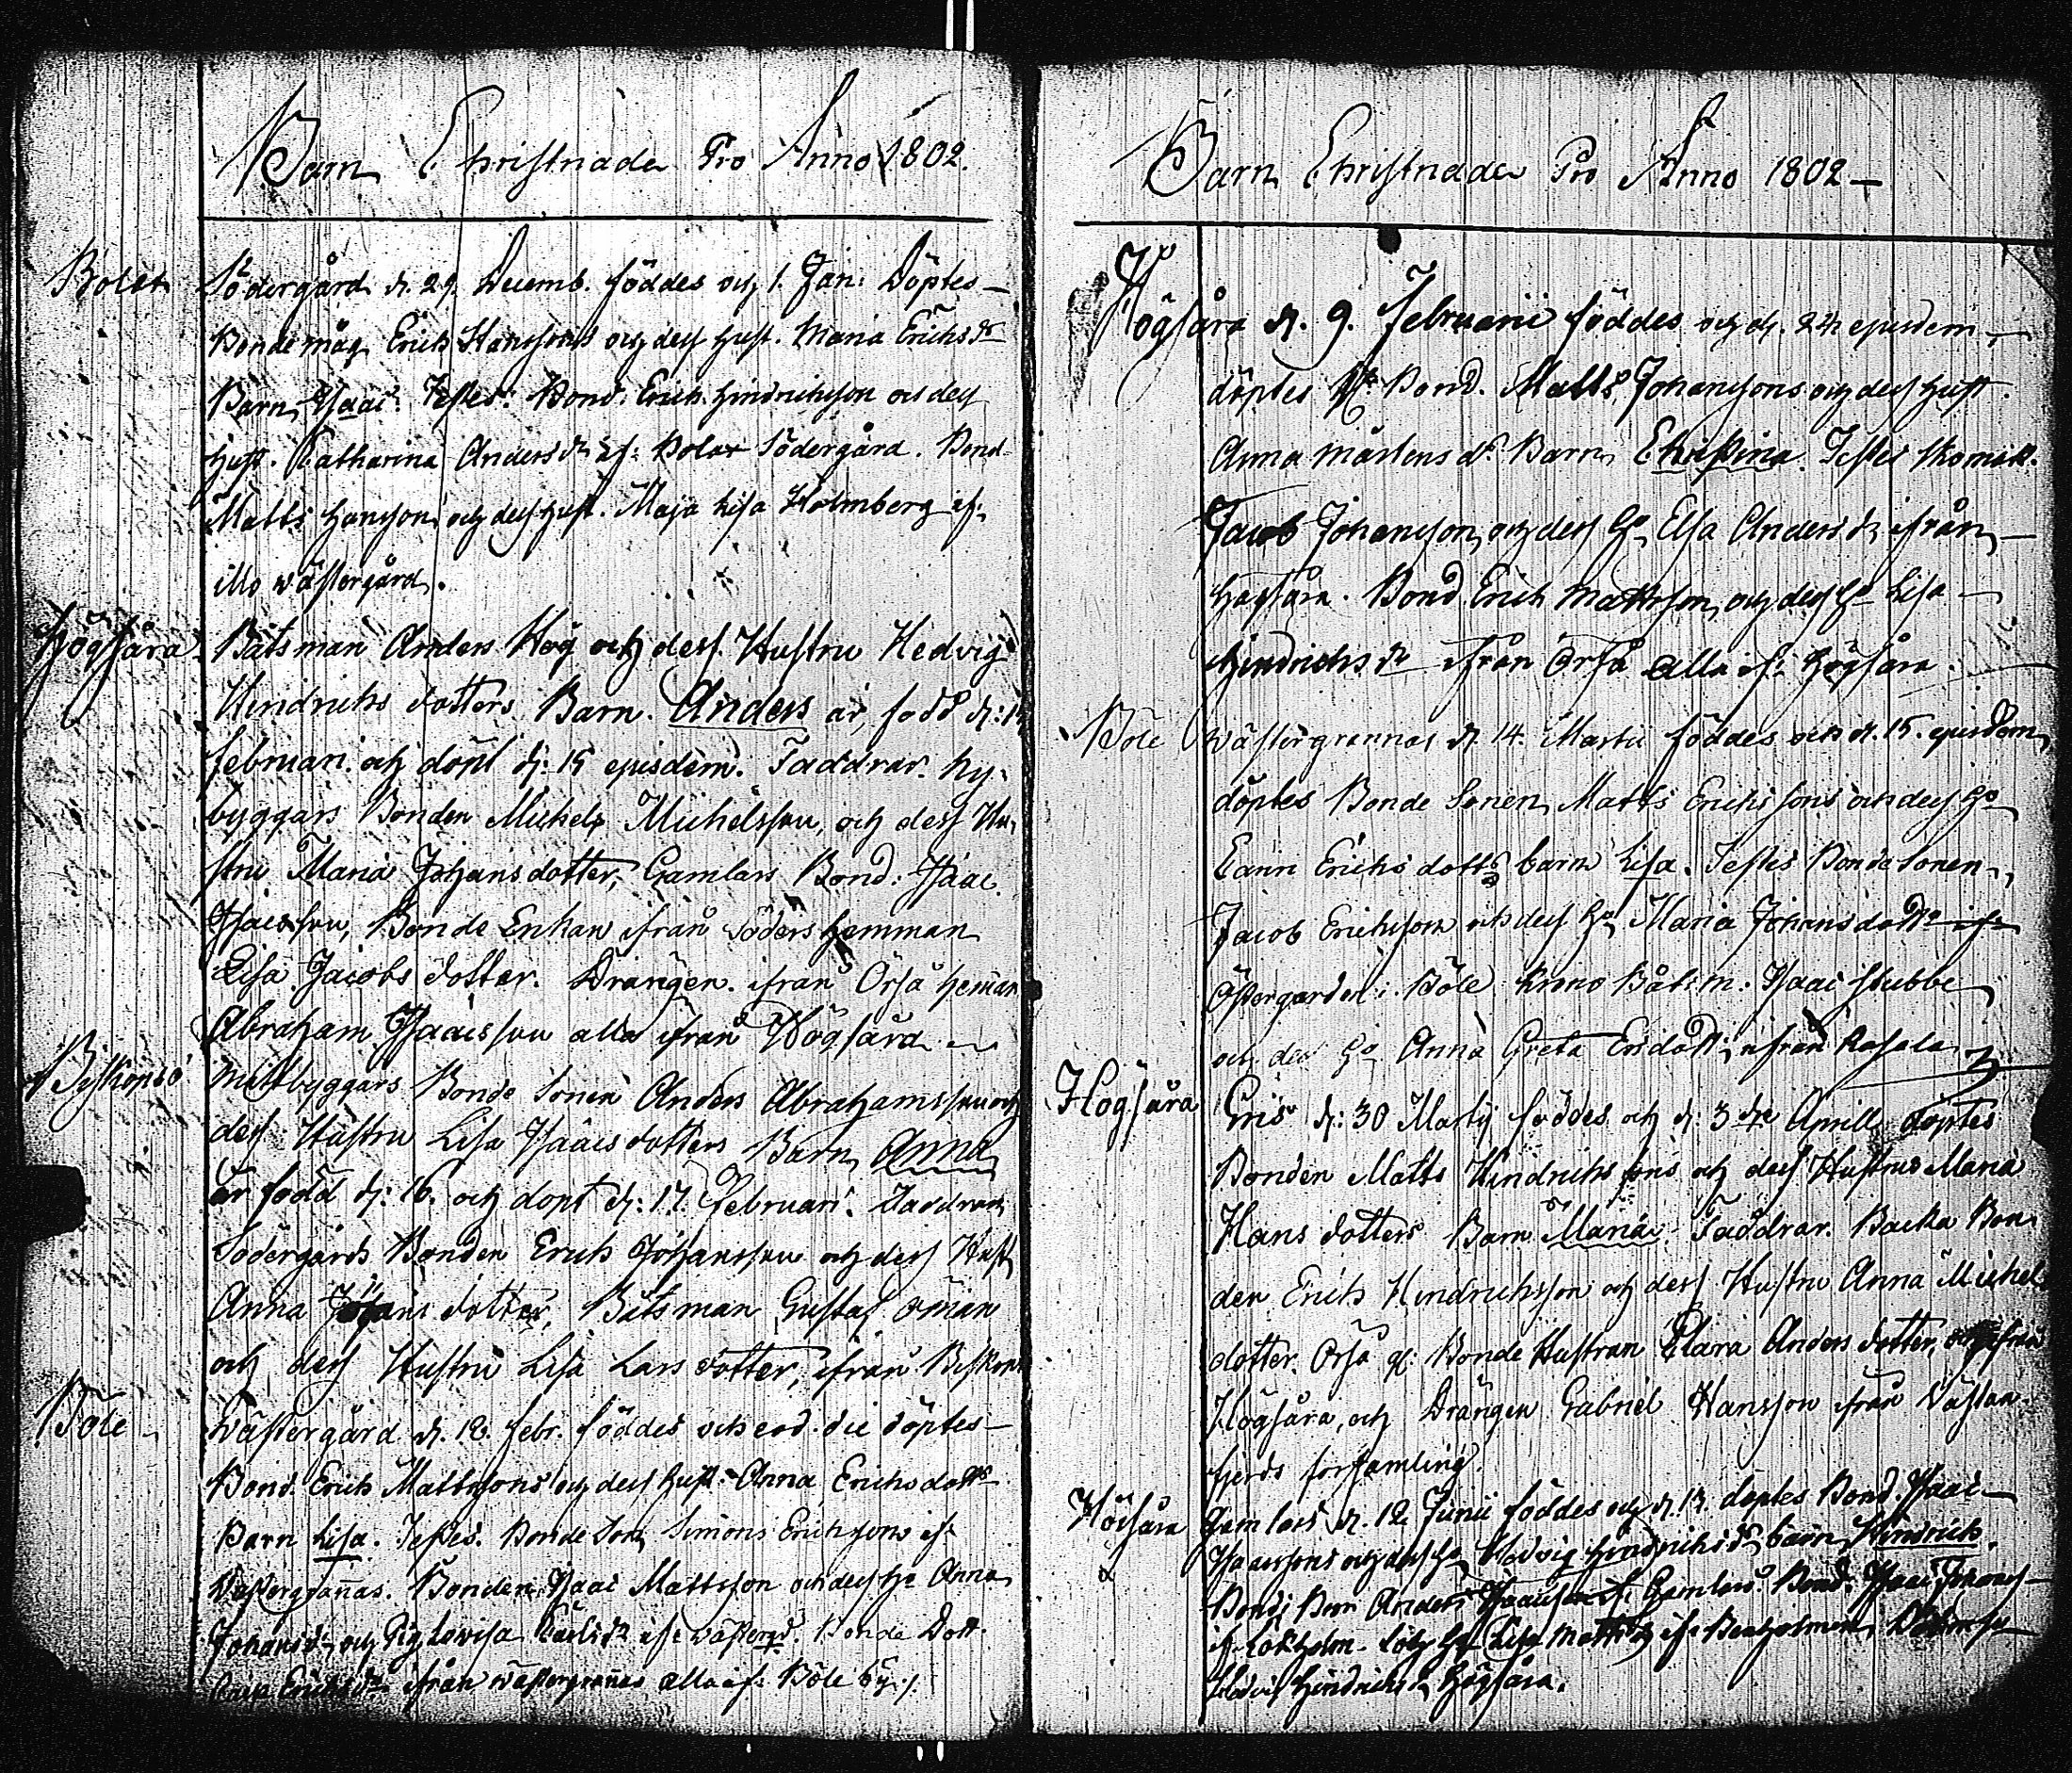 Barn Christnade Pro Anno 1802.
Bolax Södergård d. 29. Decemb. föddes och 1. Jan: Döptes
Bondemåg Erich Hanssons och dess hust. Maria Erichsdr
Barn Isaac. Testes: Bond. Erich Hindrichson och dess
hust. Catharina Andersdr if: Bolax Södergård. Bond.
Matts Hansson och dess hust. Maja Lisa Holmberg if.
illo wästergård.
Högsåra Båtsman Anders Hög och dess Hustru Hedvig
Hindrichs dotters Barn. Anders är född d:
februari och döpt d: 15 ejusdem. Faddrar. Ny-
byggars Bonden Michels Michelsson, och dess Hu-
stru Maria Johans dotter, Gamlars Bond: Isaac
Isacsson, Bonde Enkan ifrån Söders hemman
Lisa Jacobs dotter. Drängen ifrån Örså heman
Abraham Isaacsson alla ifrån Högsåra
Byskopsö Bonde Sonen Anders Abrahamsson och
dess Hustru Lisa Isaacs dotters Barn Anna
är född d: 16. och döpt d: 17. Februari. Faddrar
Södergårds Bonden Erich Johansson och dess Hust
Anna Johans dotter, Båtsman Gustaf Öman
och dess Hustru Lisa Lars dotter, ifrån
Böle Wästergård d. 12. febr. föddes och eod. die döptes
Bond. Erich Mattssons och dess hust. Anna Erichsdottr
Barn Lisa. Testes. Bonde Son Simon Erichsson if:
Wästergrannas. Bonden Isaac Mattsson och dess Hu Anna
Johansdr och Pig. Lovisa Carlsdr if: wästergd. Bonde Dott.
Erichsdr ifrån wästergrannas alla if: Böle by.
Barn Christnade Pro Anno 1802
Högsåra d. 9. Februarii föddes och d. 24 ejusdem
döptes Bond. Matts Johanssons och dess hust.
Anna Mårtens dr Barn Christina. Testes
Jacob Johansson och dess hu Elsa Anders dr ifrån
Högsåra. Bond Erich Mattsson och dess hu Lisa
Hindrichs dr ifrån Örså alla if: Högsåra
Böle wästergrannas d. 14. Martii föddes och d. 15. ejusdem
döptes Bonde Sonen Matts Erichssons och dess hu
Carin Erichs dotts barn Lisa. Testes Bonde Sonen
Jacob Erichsson och dess hu Maria Johansdottr if
Östergården i Böle. Krono Båtsm. Isaac Stubbe
och dess hu Anna Greta ifrån Rosala
Högsåra Gris d: 30 Martij föddes och d: 3 dje Aprill döptes
Bonden Matts Hindrichssons och dess Hustrus Maria
Hans dotters Barn Maria. Faddrar. Backa Bon-
den Erich Hindrichsson och dess Hustru Anna Michels
dotter. Örså Bonde Hustrun Clara Anders dotter,
Högsåra, och Drängen Gabriel Hansson ifrån Västan-
fjerds församling.
Högsåra Gamlars d. 12 Junii föddes och d. 13. döptes Bond. Isaac
Isaacssons och dess hu Hedvig Hindrichsdr barn Hindrich.
Bond. Anders Isaacsson if. Gamlars. Bond. Isaac
if. Lökholm Hu Lisa if:
Hedvig Hindrichs Högsåra.